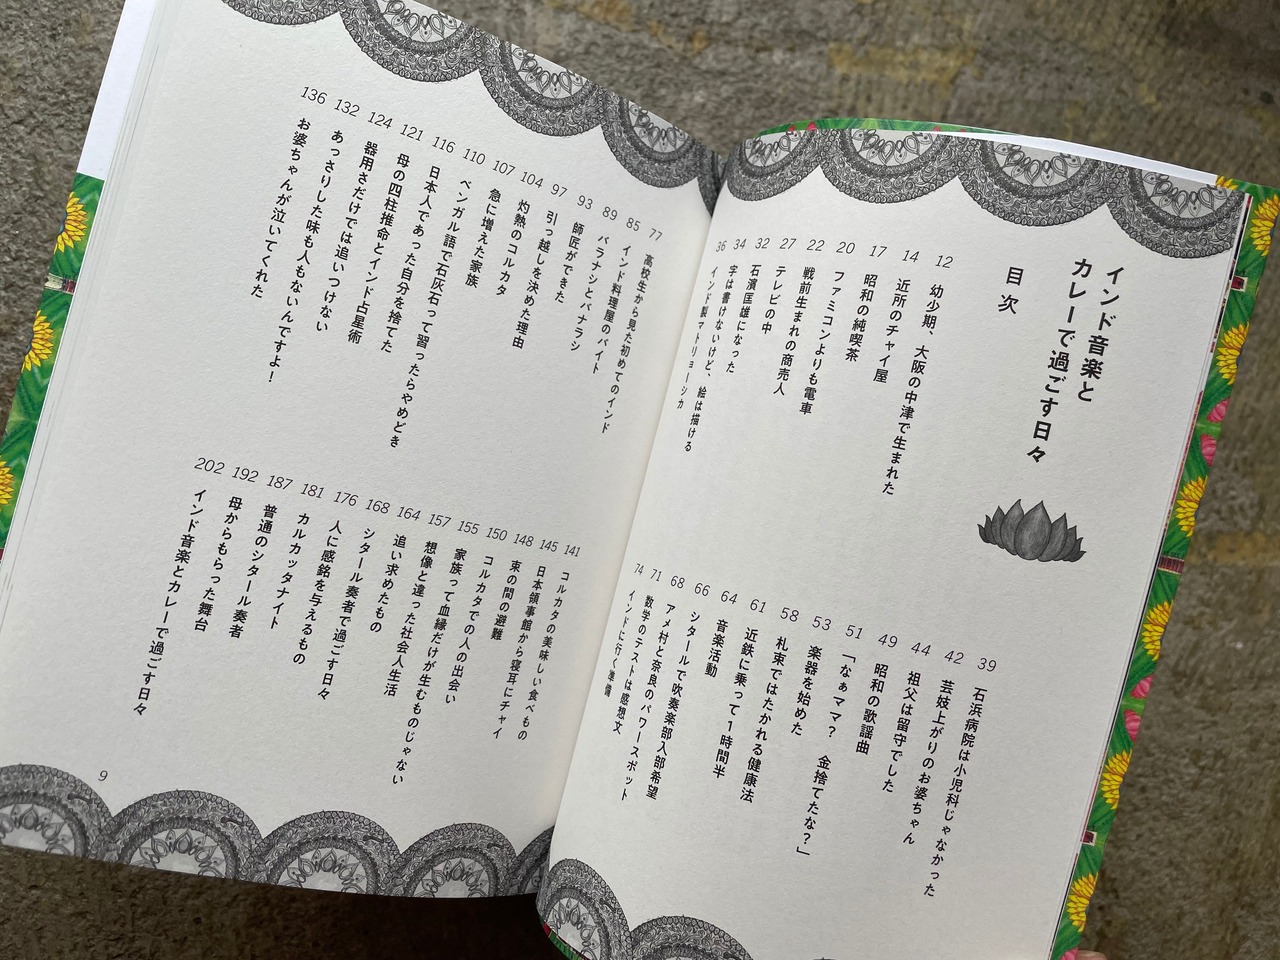 インド音楽と
カレーで過ごす日々
目次
12 幼少期、大阪の中津で生まれた
14 近所のチャイ屋
17 昭和の純喫茶
20 ファミコンよりも電車
22 戦前生まれの商売人
27 テレビの中
32 石濱匡雄になった
34 字は書けないけど、絵は描ける
36 インド製マトリョーシカ
39 石浜病院は小児科じゃなかった
42 芸妓上がりのお婆ちゃん
44 祖父は留守でした
49 昭和の歌謡曲
51 「なぁママ? 金捨てたな?」
53 楽器を始めた
58 札束ではたかれる健康法
61 近鉄に乗って1時間半
64 音楽活動
66 シタールで吹奏楽部入部希望
68 アメ村と奈良のパワースポット
71 数学のテストは感想文
74 インドに行く準備
77 高校生から見た初めてのインド
85 インド料理屋のバイト
89 バラナシとバナラシ
93 師匠ができた
97 引っ越しを決めた理由
104 灼熱のコルカタ
107 急に増えた家族
110 ベンガル語で石灰石って習ったらやめどき
116 日本人であった自分を捨てた
121 母の四柱推命とインド占星術
124 器用さだけでは追いつけない
132 あっさりした味も人もないんですよ!
136 お婆ちゃんが泣いてくれた
141 コルカタの美味しい食べもの
145 日本領事館から寝耳にチャイ
148 束の間の避難
150 コルカタでの人の出会い
155 家族って血縁だけが生むものじゃない
157 想像と違った社会人生活
164 追い求めたもの
168 シタール奏者で過ごす日々
176 人に感銘を与えるもの
181 カルカッタナイト
187 普通のシタール奏者
192 母からもらった舞台
202 インド音楽とカレーで過ごす日々
9